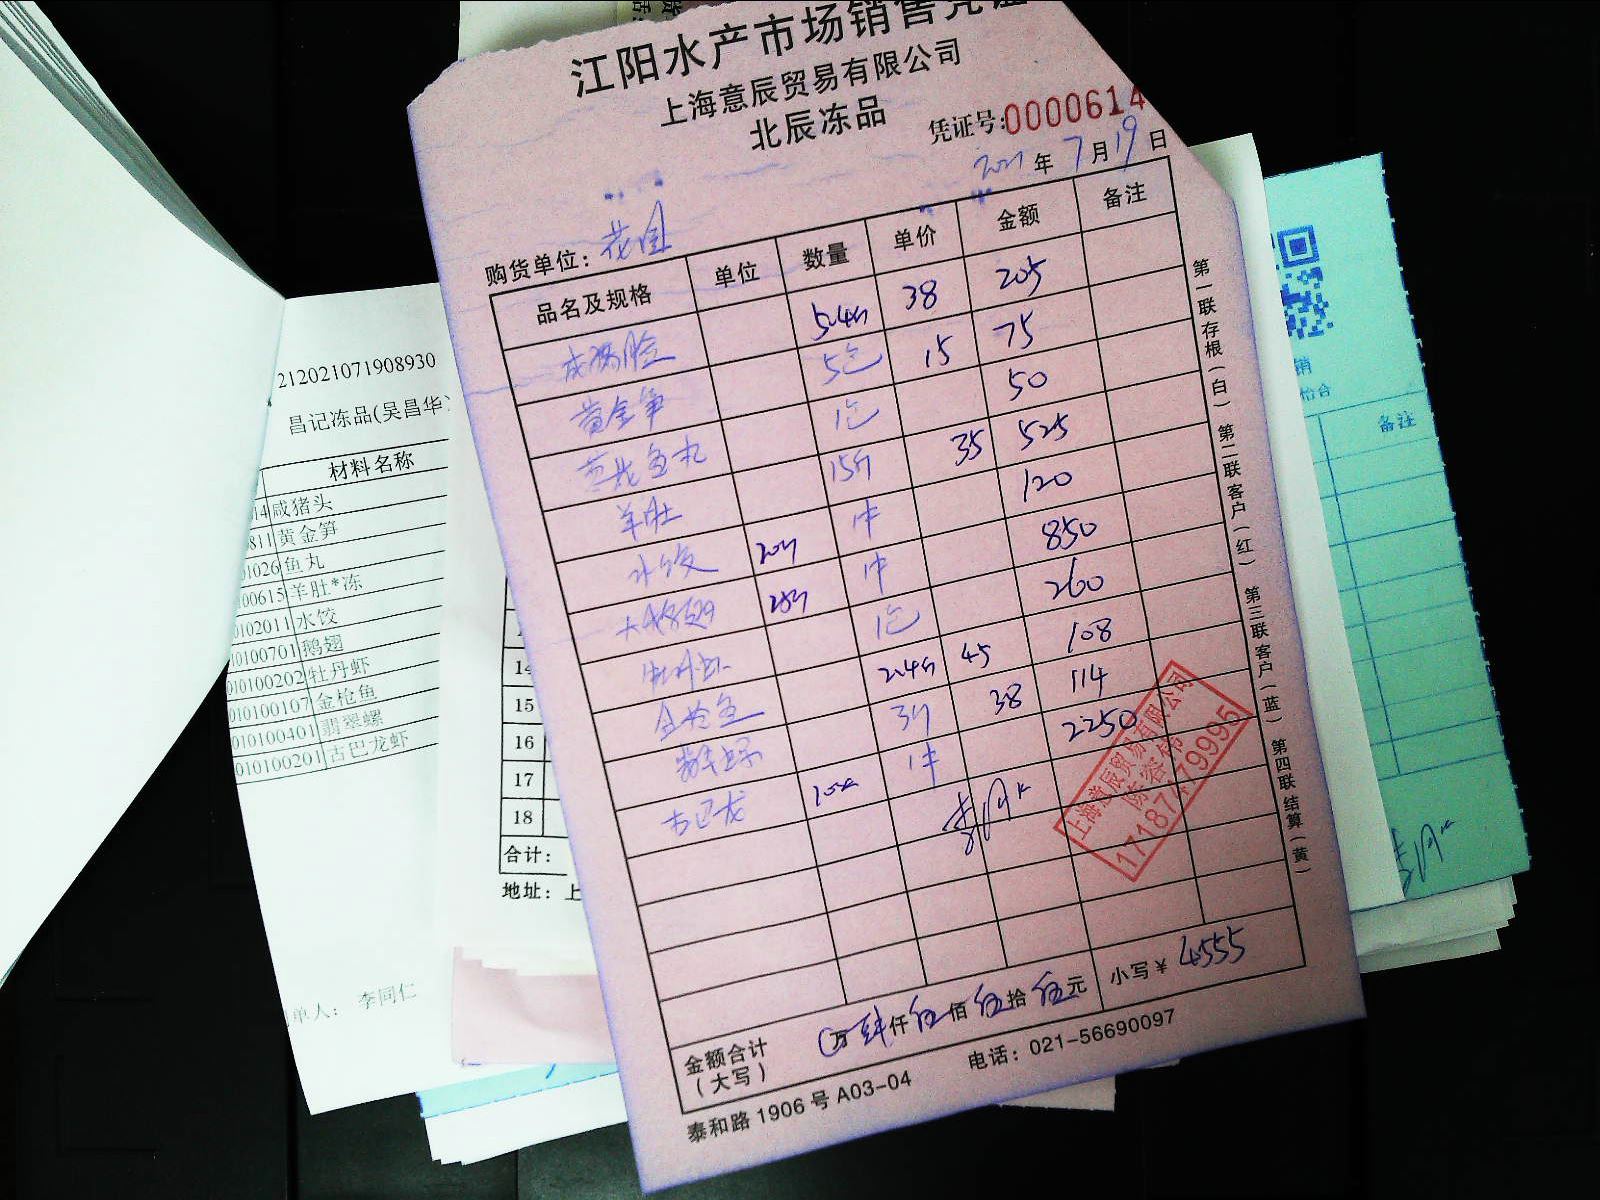 江阳水产市场销售凭证
上海意辰贸易有限公司
北辰冻品
凭证号:0000614
2021年7月19日
购货单位：花园
品名及规格 单位 数量 单价 金额 备注
5.4斤 38 205
黄金笋 5包 15 75
黄花鱼丸 1包 50
羊肚 15斤 35 525
水饺 20斤 1件 120
1件 850
牡丹虾 1包 260
金枪鱼 2.4斤 45 108
翡翠螺 3斤 38 114
古巴龙 1件 2250
上海意辰贸易有限公司
17187479995
金额合计（大写） 万肆仟伍佰伍拾伍元 小写￥4555
泰和路1906号A03-04 电话：021-56690097
第一联存根（白） 第二联客户（红） 第三联客户（蓝） 第四联结算（黄）
212021071908930
昌记冻品(吴昌华)
材料名称
14 咸猪头
811 黄金笋
01026 鱼丸
00615 羊肚*冻
0102011 水饺
10100701 鹅翅
010100202 牡丹虾
010100107 金枪鱼
010100401 翡翠螺
010100201 古巴龙虾
单人： 李同仁
14
15
16
17
18
合计：
地址：上
销
怡合
备注